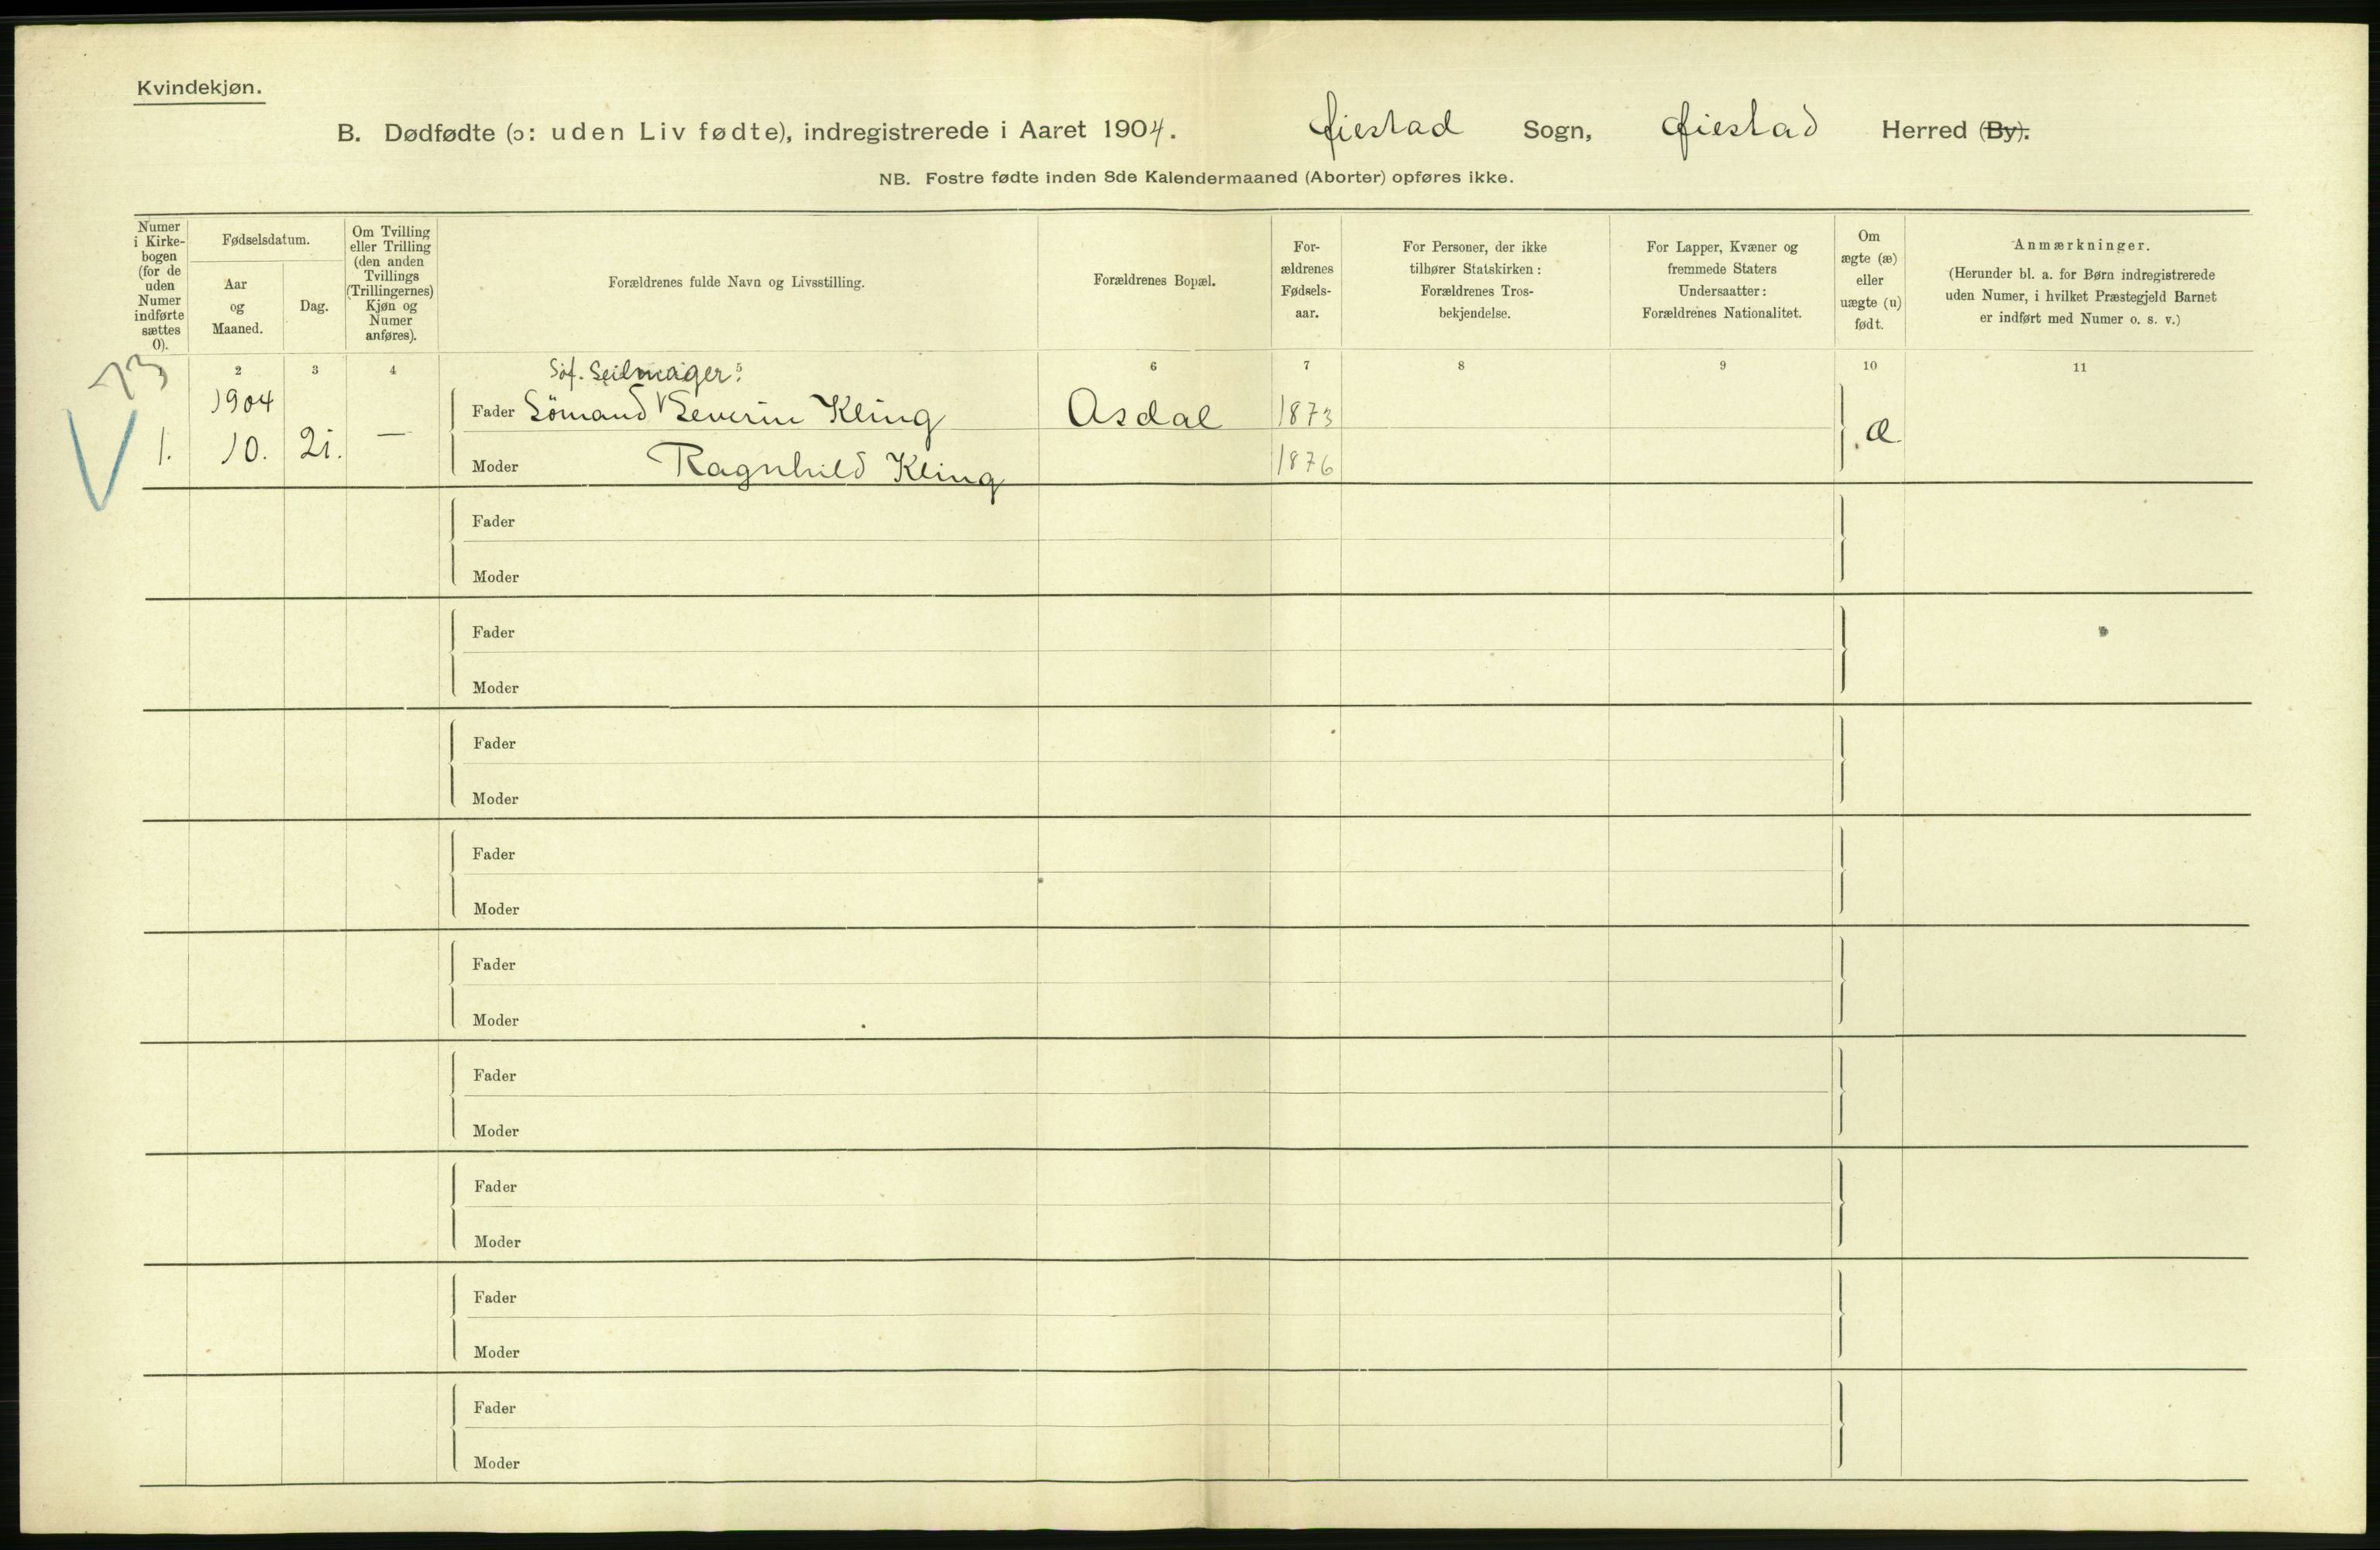 Kvindekjøn.
B. Dødfødte (ɔ: uden Liv fødte), indregistrerede i Aaret 1904. Øiestad Sogn, Øiestad Herred (By).
NB. Fostre fødte inden 8de Kalendermaaned (Aborter) opføres ikke.
Numer i Kirke-bogen (for de uden Numer indførte sættes 0).
Fødselsdatum.
Aar og Maaned.
Dag.
Om Tvilling eller Trilling (den anden Tvillings (Trillingernes) Kjøn og Numer anføres).
Forældrenes fulde Navn og Livsstilling.
Forældrenes Bopæl.
For-ældrenes Fødsels-aar.
For Personer, der ikke tilhører Statskirken: Forældrenes Tros-bekjendelse.
For Lapper, Kvæner og fremmede Staters Undersaatter: Forældrenes Nationalitet.
Om ægte (æ) eller uægte (u) født.
Anmærkninger.
(Herunder bl. a. for Børn indregistrerede uden Numer, i hvilket Præstegjeld Barnet er indført med Numer o. s. v.)
2 3 4 5 6 7 8 9 10 11
73
Söf. Seilmager:
1904
Fader Sömand Severin Kling Asdal 1873
1. 10. 21. — æ.
Moder Ragnhild Kling 1876
Fader
Moder
Fader
Moder
Fader
Moder
Fader
Moder
Fader
Moder
Fader
Moder
Fader
Moder
Fader
Moder
Fader
Moder